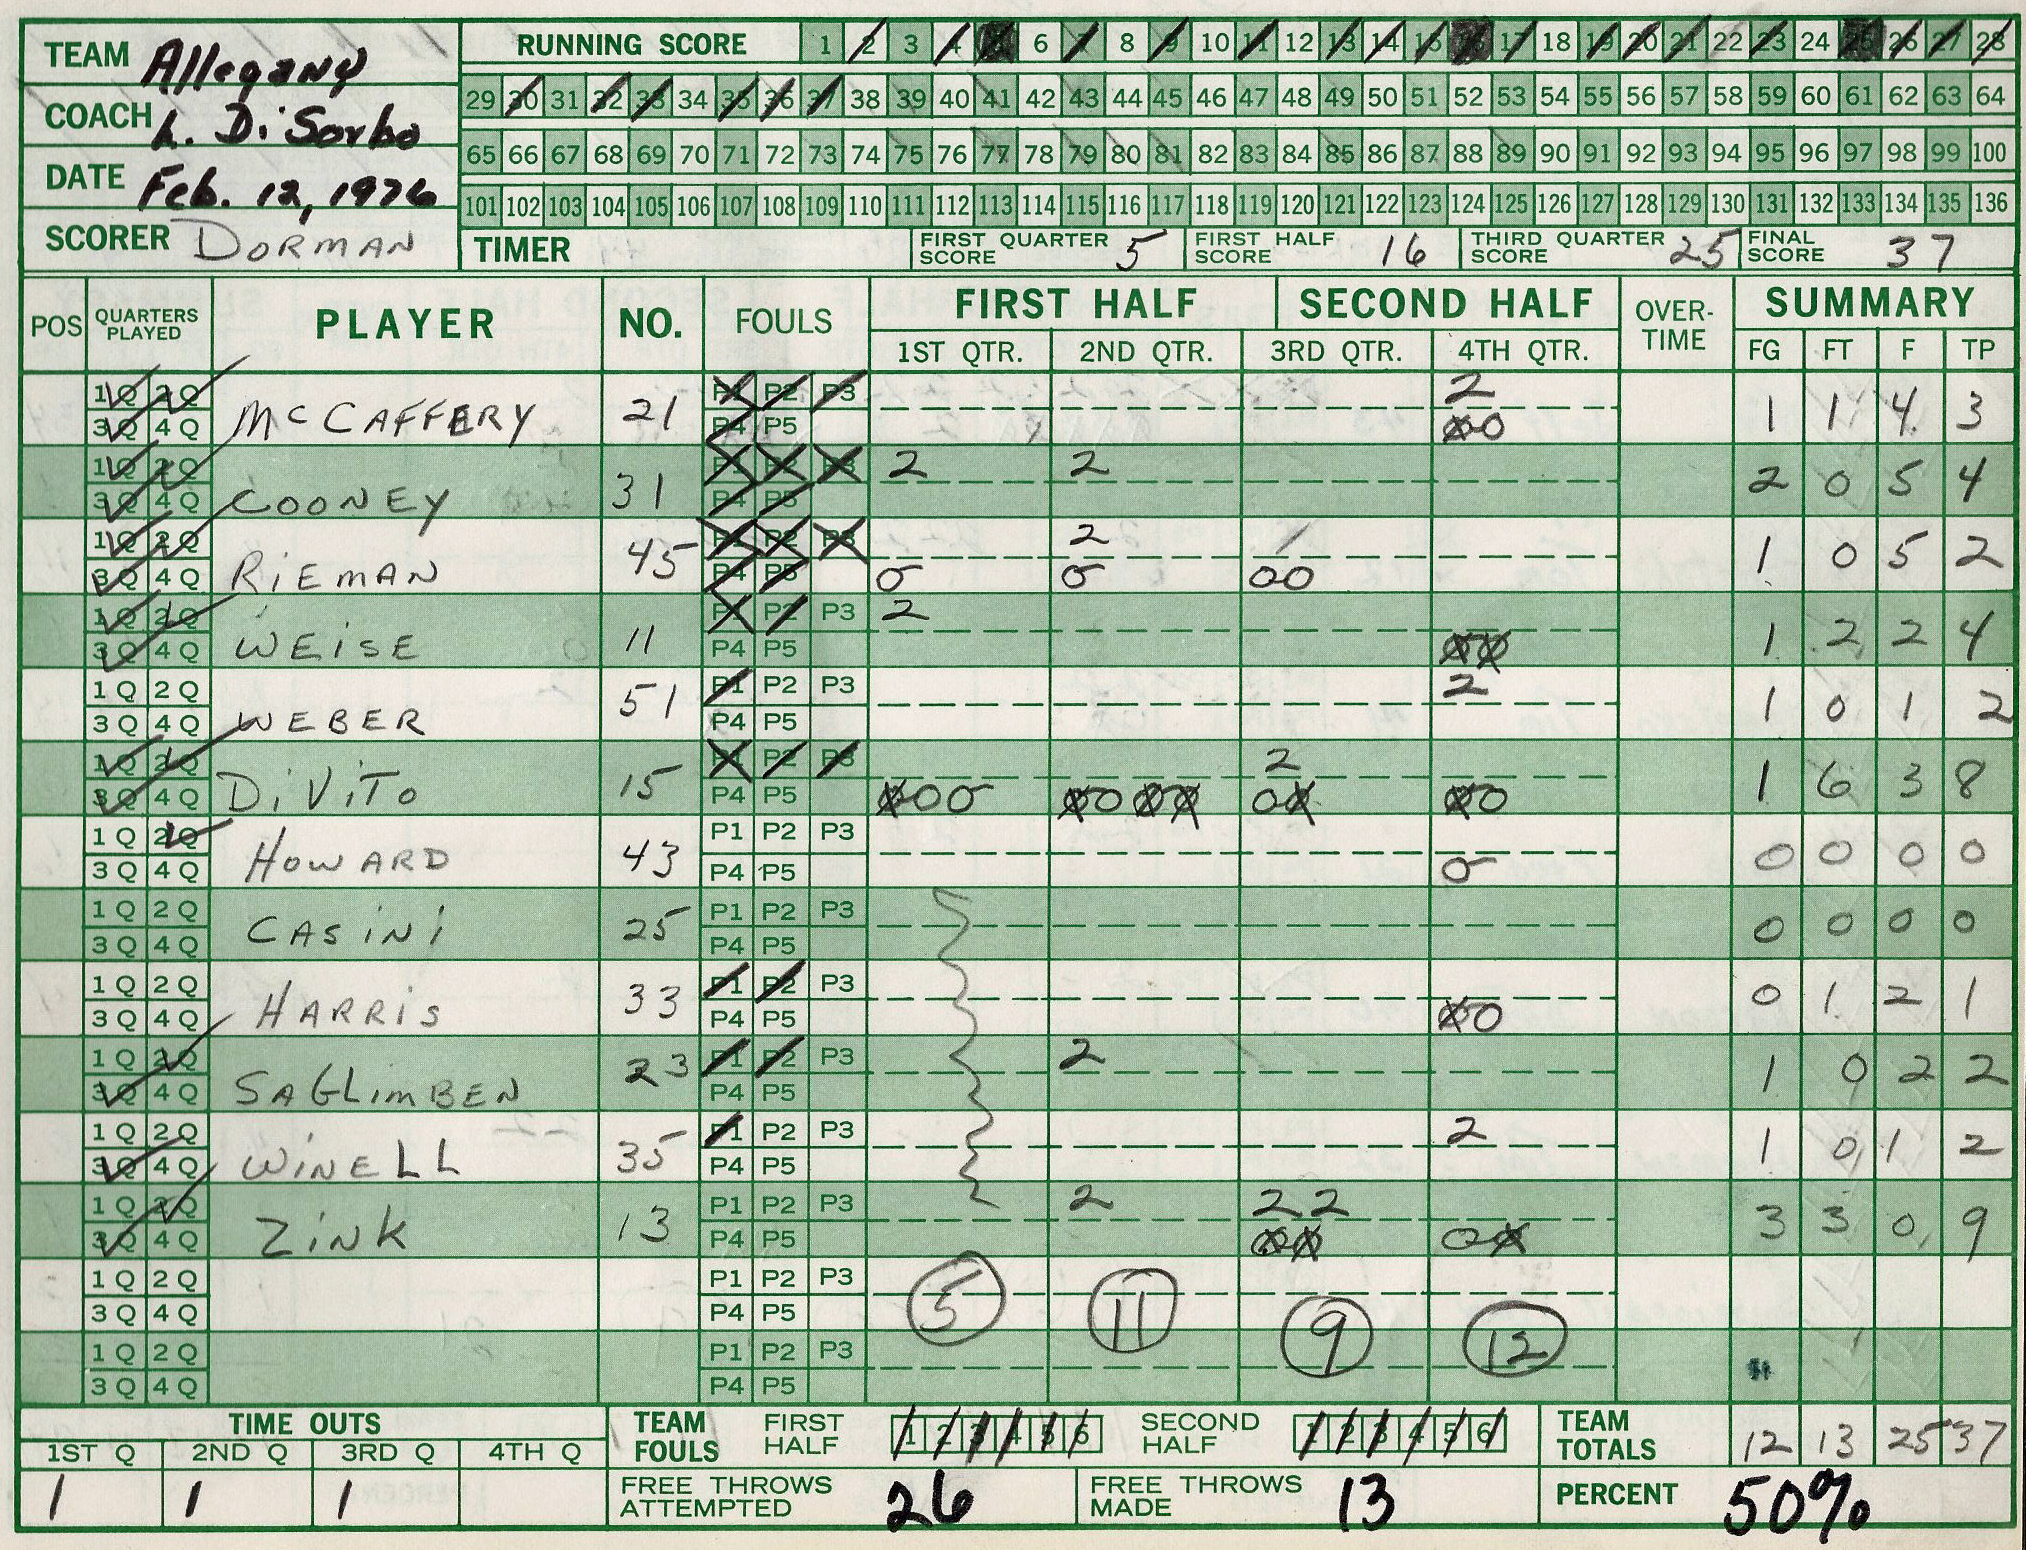 TEAM Allegany
COACH L. DiSorbo
DATE Feb. 12, 1976
SCORER DORMAN
RUNNING SCORE 1 2 3 4 5 6 7 8 9 10 11 12 13 14 15 16 17 18 19 20 21 22 23 24 25 26 27 28
29 30 31 32 33 34 35 36 37 38 39 40 41 42 43 44 45 46 47 48 49 50 51 52 53 54 55 56 57 58 59 60 61 62 63 64
65 66 67 68 69 70 71 72 73 74 75 76 77 78 79 80 81 82 83 84 85 86 87 88 89 90 91 92 93 94 95 96 97 98 99 100
101 102 103 104 105 106 107 108 109 110 111 112 113 114 115 116 117 118 119 120 121 122 123 124 125 126 127 128 129 130 131 132 133 134 135 136
TIMER FIRST QUARTER SCORE 5 FIRST HALF SCORE 16 THIRD QUARTER SCORE 25 FINAL SCORE 37
POS QUARTERS PLAYED PLAYER NO. FOULS FIRST HALF SECOND HALF OVER-TIME SUMMARY
1ST QTR. 2ND QTR. 3RD QTR. 4TH QTR. FG FT F TP
1Q 2Q P1 P2 P3 2
3Q 4Q McCAFFERY 21 P4 P5 1 1 4 3
1Q 2Q P1 P2 P3 2 2
3Q 4Q COONEY 31 P4 P5 2 0 5 4
1Q 2Q P1 P2 P3 2
3Q 4Q RiEMAN 45 P4 P5 0 0 00 1 0 5 2
1Q 2Q P1 P2 P3 2
3Q 4Q WEiSE 11 P4 P5 1 2 2 4
1Q 2Q P1 P2 P3 2
3Q 4Q WEBER 51 P4 P5 1 0 1 2
1Q 2Q P1 P2 P3 2
3Q 4Q DiViTo 15 P4 P5 1 6 3 8
1Q 2Q P1 P2 P3
3Q 4Q HOWARD 43 P4 P5 0 0 0 0 0
1Q 2Q P1 P2 P3
3Q 4Q CASiNi 25 P4 P5 0 0 0 0
1Q 2Q P1 P2 P3
3Q 4Q HARRiS 33 P4 P5 0 1 2 1
1Q 2Q P1 P2 P3 2
3Q 4Q SAGLimBEN 23 P4 P5 1 0 2 2
1Q 2Q P1 P2 P3 2
3Q 4Q WiNELL 35 P4 P5 1 0 1 2
1Q 2Q P1 P2 P3 2 2 2
3Q 4Q ZiNK 13 P4 P5 3 3 0 9
1Q 2Q P1 P2 P3
3Q 4Q P4 P5 5 11 9 12
1Q 2Q P1 P2 P3
3Q 4Q P4 P5
TIME OUTS TEAM FOULS FIRST HALF 1 2 3 4 5 6 SECOND HALF 1 2 3 4 5 6 TEAM TOTALS 12 13 25 37
1ST Q 2ND Q 3RD Q 4TH Q
1 1 1 FREE THROWS ATTEMPTED 26 FREE THROWS MADE 13 PERCENT 50%